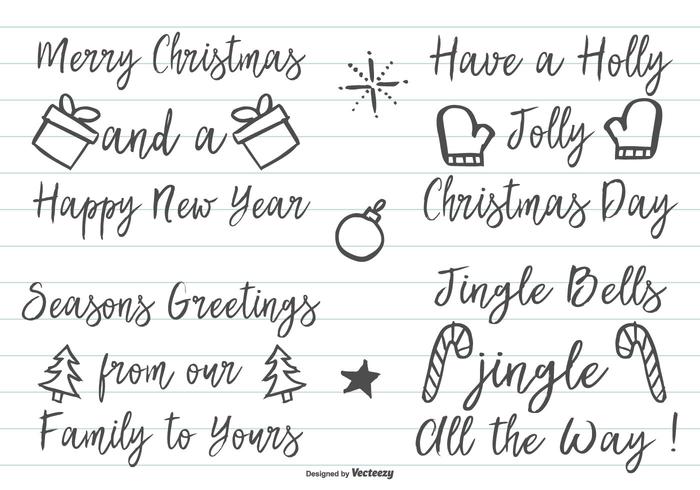 Merry Christmas
and a
Happy New Year
Have a Holly
Jolly
Christmas Day
Seasons Greetings
from our
Family to Yours
Jingle Bells
jingle
All the Way !
Designed by Vecteezy